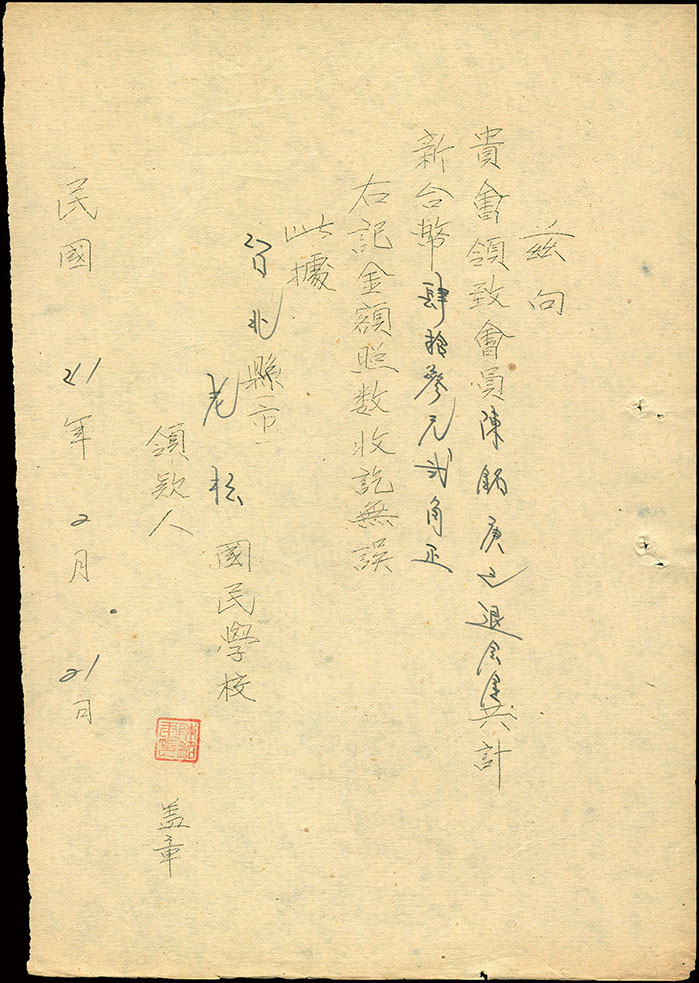 茲向
貴會領致會員陳銘庚之退会金共計
新台幣肆拾參元貳角正
右記金額照数收訖無誤
此據
台北縣市
老松國民學校
領款人 盖章
民國 41年2月21日